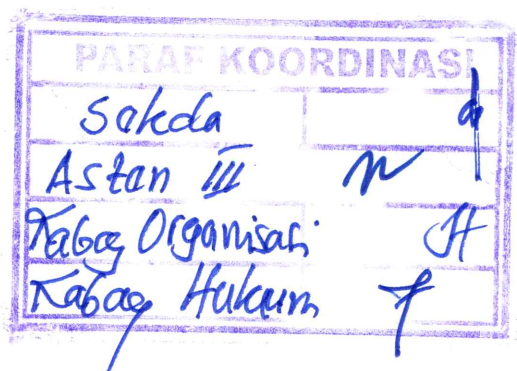 PARAF KOORDINASI
Sekda
Asten III
Kabag Organisasi
Kabag Hukum